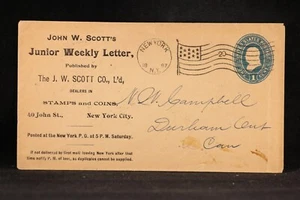 JOHN W. SCOTT'S
Junior Weekly Letter,
Published by
The J. W. SCOTT CO., L'd,
DEALERS IN
STAMPS AND COINS,
40 John St., New York City.
Posted at the New York P. O. at 5 P. M. Saturday.
If not delivered
NEW YORK
N.Y.
N. W. Campbell
Durham Ont
Can